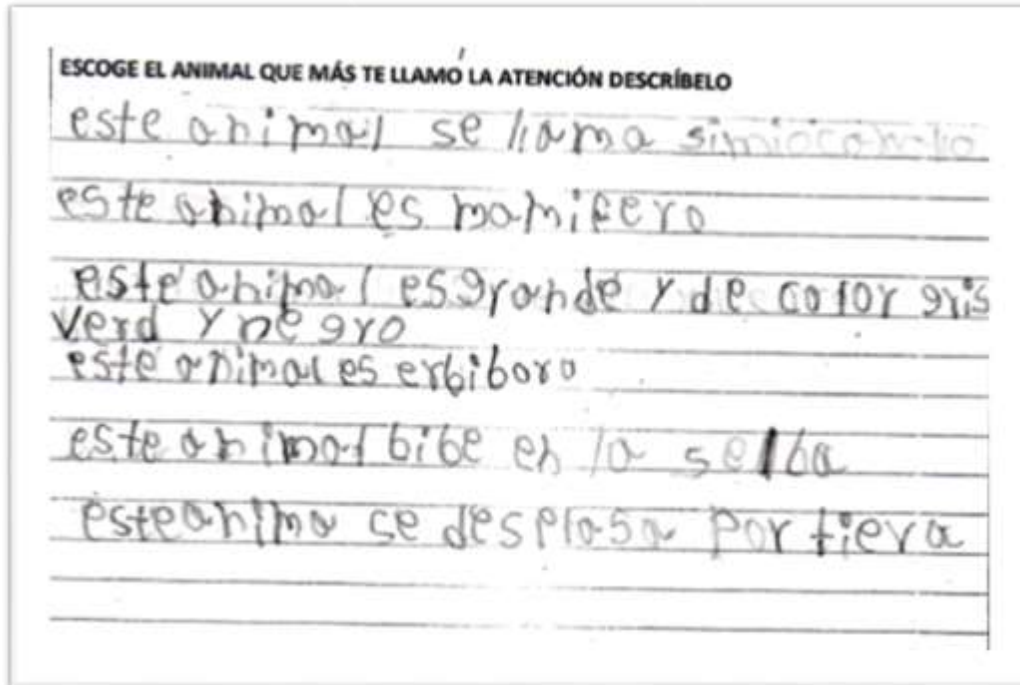 ESCOGE EL ANIMAL QUE MÁS TE LLAMÓ LA ATENCIÓN DESCRÍBELO
este animal se llama
este animal es mamifero
este animal es grande y de color gris
verd y negro
este animal es erbiboro
este animal bibe en la selba
este anima se desplasa por tiera